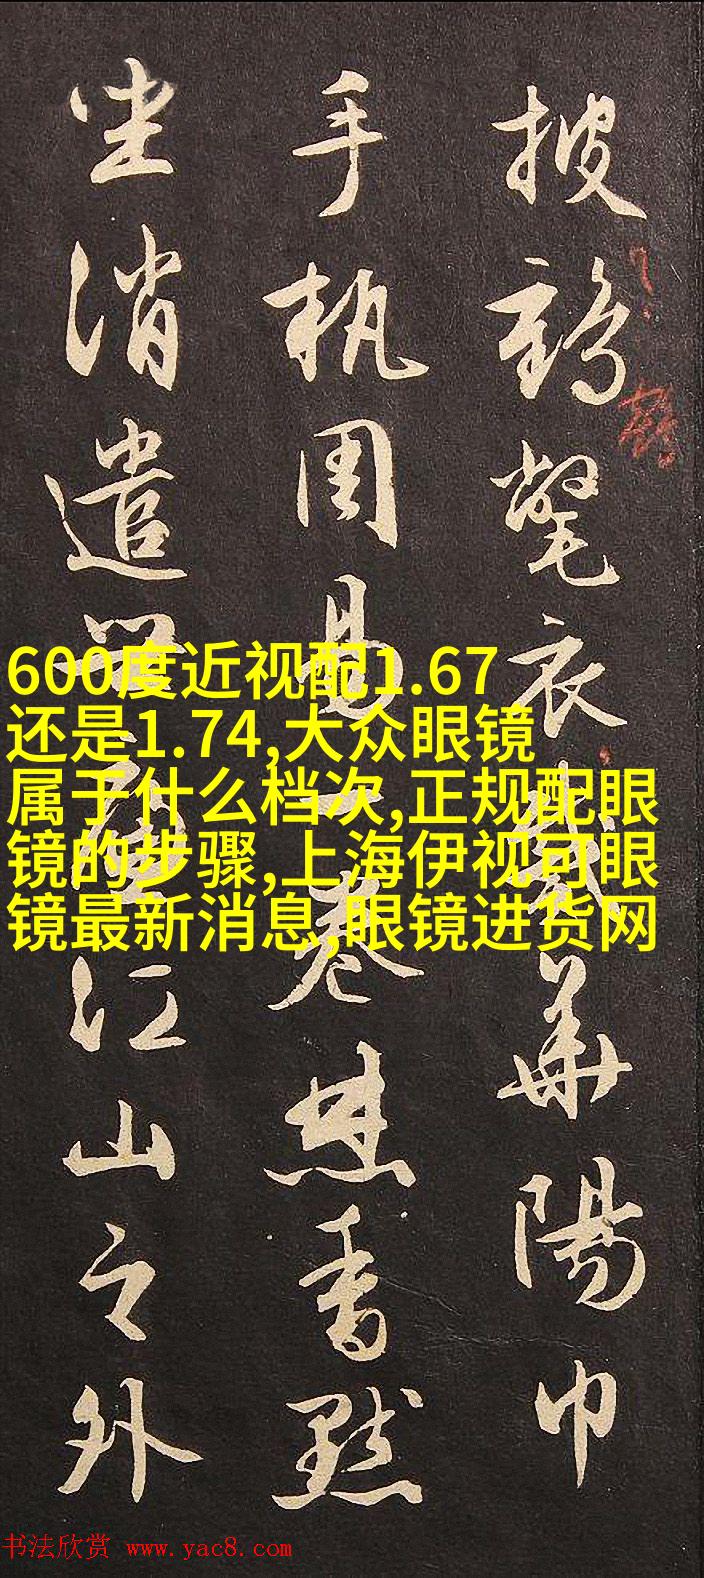 披鶴氅衣戴華陽巾
手執周易一卷焚香默
坐消遣世慮江山之外
鶴
600度近视配1.67
还是1.74,大众眼镜
属于什么档次,正规配眼
镜的步骤,上海伊视可眼
镜最新消息,眼镜进货网
书法欣赏 www.yac8.com